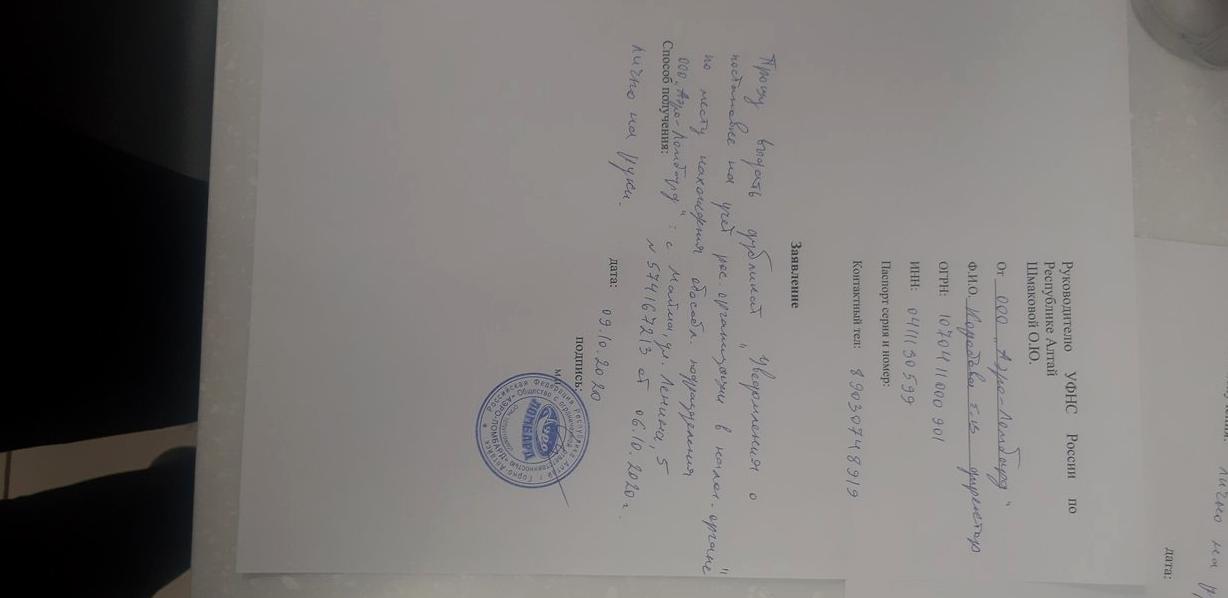 Руководителю УФНС России по
Республике Алтай
Шмаковой О.Ю.
От ООО „Аэро-Ломбард"
Ф.И.О. директор
ОГРН: 1070411000901
ИНН: 0411130599
Паспорт серия и номер:
Контактный тел: 89030748919
Заявление
Прошу выдать дубликат „Уведомления о
постановке на учет рос. организации в налог. органе"
по месту нахождения обособл. подразделения
ООО „Аэро-Ломбард" : с. Майма, ул. Ленина, 5
Способ получения: N 574167213 от 06.10.2020г.
лично на руки.
дата: 09.10.2020
подпись:
М
Российская Федерация Республика Алтай г. Горно-Алтайск
Общество с ограниченной ответственностью «АЭРО-ЛОМБАРД»
АЭРО
ЛОМБАРД
лично на
дата: